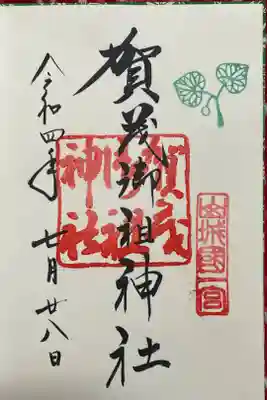 山城國一宮
賀茂御祖神社
賀茂
御祖
神社
令和四年 月廿八日